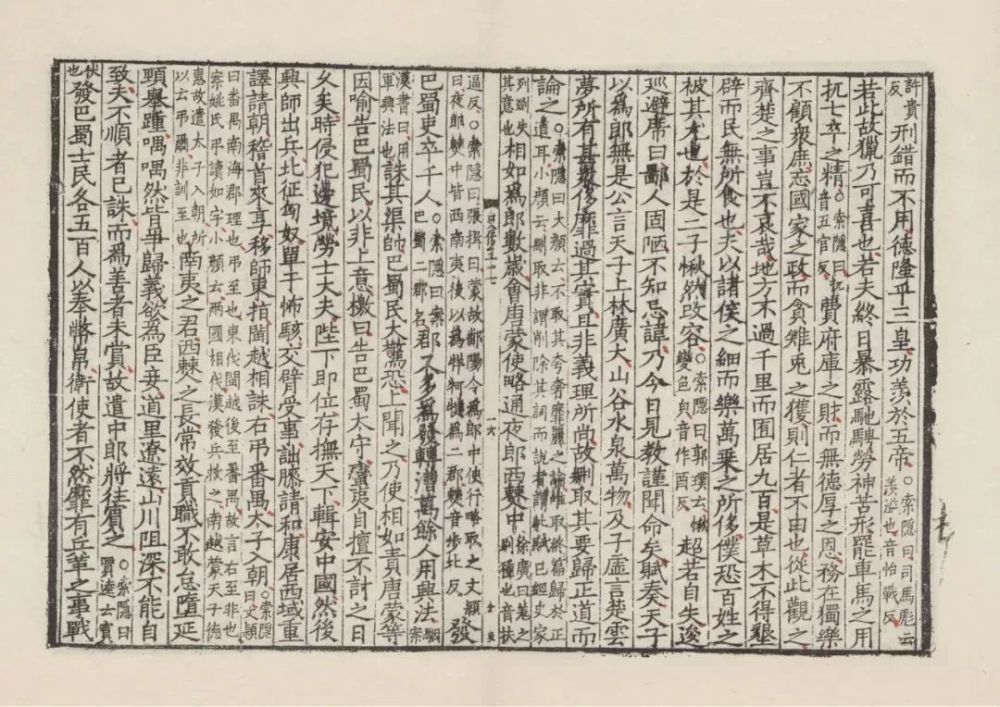 許貴反刑錯而不用德隆乎三皇功羨於五帝○索隱曰司馬彪云羨溢也音怡戰反
若此故獵乃可喜也若夫終日暴露馳騁勞神苦形罷車馬之用
抏士卒之精○索隱曰抏音五官反費府庫之財而無德厚之恩務在獨樂
不顧衆庶忘國家之政而貪雉兎之獲則仁者不由也從此觀之
齊楚之事豈不哀哉地方不過千里而囿居九百是草木不得墾
辟而民無所食也夫以諸侯之細而樂萬乗之所侈僕恐百姓之
被其尤也於是二子愀然改容○索隱曰郭璞云愀變色皃音作酉反超若自失逡
巡避席曰鄙人固陋不知忌諱乃今日見教謹聞命矣賦奏天子
以爲郎無是公言天子上林廣大山谷水泉萬物及子虚言楚雲
夢所有甚衆侈靡過其實且非義理所尚故刪取其要歸正道而
論之○索隱曰大顔云不取其夸奢靡麗之論唯取終篇歸於正道耳小顔云刪取非謂削除其詞而說者謂此賦已經史家
刊剟失其意也相如爲郎數歳會唐蒙使略通夜郎西僰中徐廣曰羌之別種也音扶
史記傳五十七 十六
逼反○索隱曰張揖曰蒙故鄱陽令爲郎中使行略取之文穎曰夜郎僰中皆西南夷後以爲牂柯犍爲二郡僰音步北反發
巴蜀吏卒千人○索隱曰案巴蜀二郡名郡又多爲發轉漕萬餘人用興法
漢書曰用軍興法也誅其渠帥巴蜀民大驚恐上聞之乃使相如責唐蒙等
因喻告巴蜀民以非上意檄曰告巴蜀太守蠻夷自擅不討之日
久矣時侵犯邊境勞士大夫陛下即位存撫天下輯安中國然後
興師出兵北征匈奴單于怖駭交臂受事詘膝請和康居西域重
譯請朝稽首來享移師東指閩越相誅右弔番禺太子入朝○索隱曰文穎
曰番禺南海郡理也弔至也東伐閩越後至番禺故言右至非也案姚氏弔讀如字小顔云兩國相伐漢發兵救之南越蒙天子德
惠故遣太子入朝所以云弔爾非訓至也南夷之君西僰之長常效貢職不敢怠墮延
頸舉踵喁喁然皆爭歸義欲爲臣妾道里遼遠山川阻深不能自
致夫不順者已誅而爲善者未賞故遣中郎將往賓之○索隱曰賈逵云賓
伏也發巴蜀士民各五百人以奉幣帛衛使者不然靡有兵革之事戰